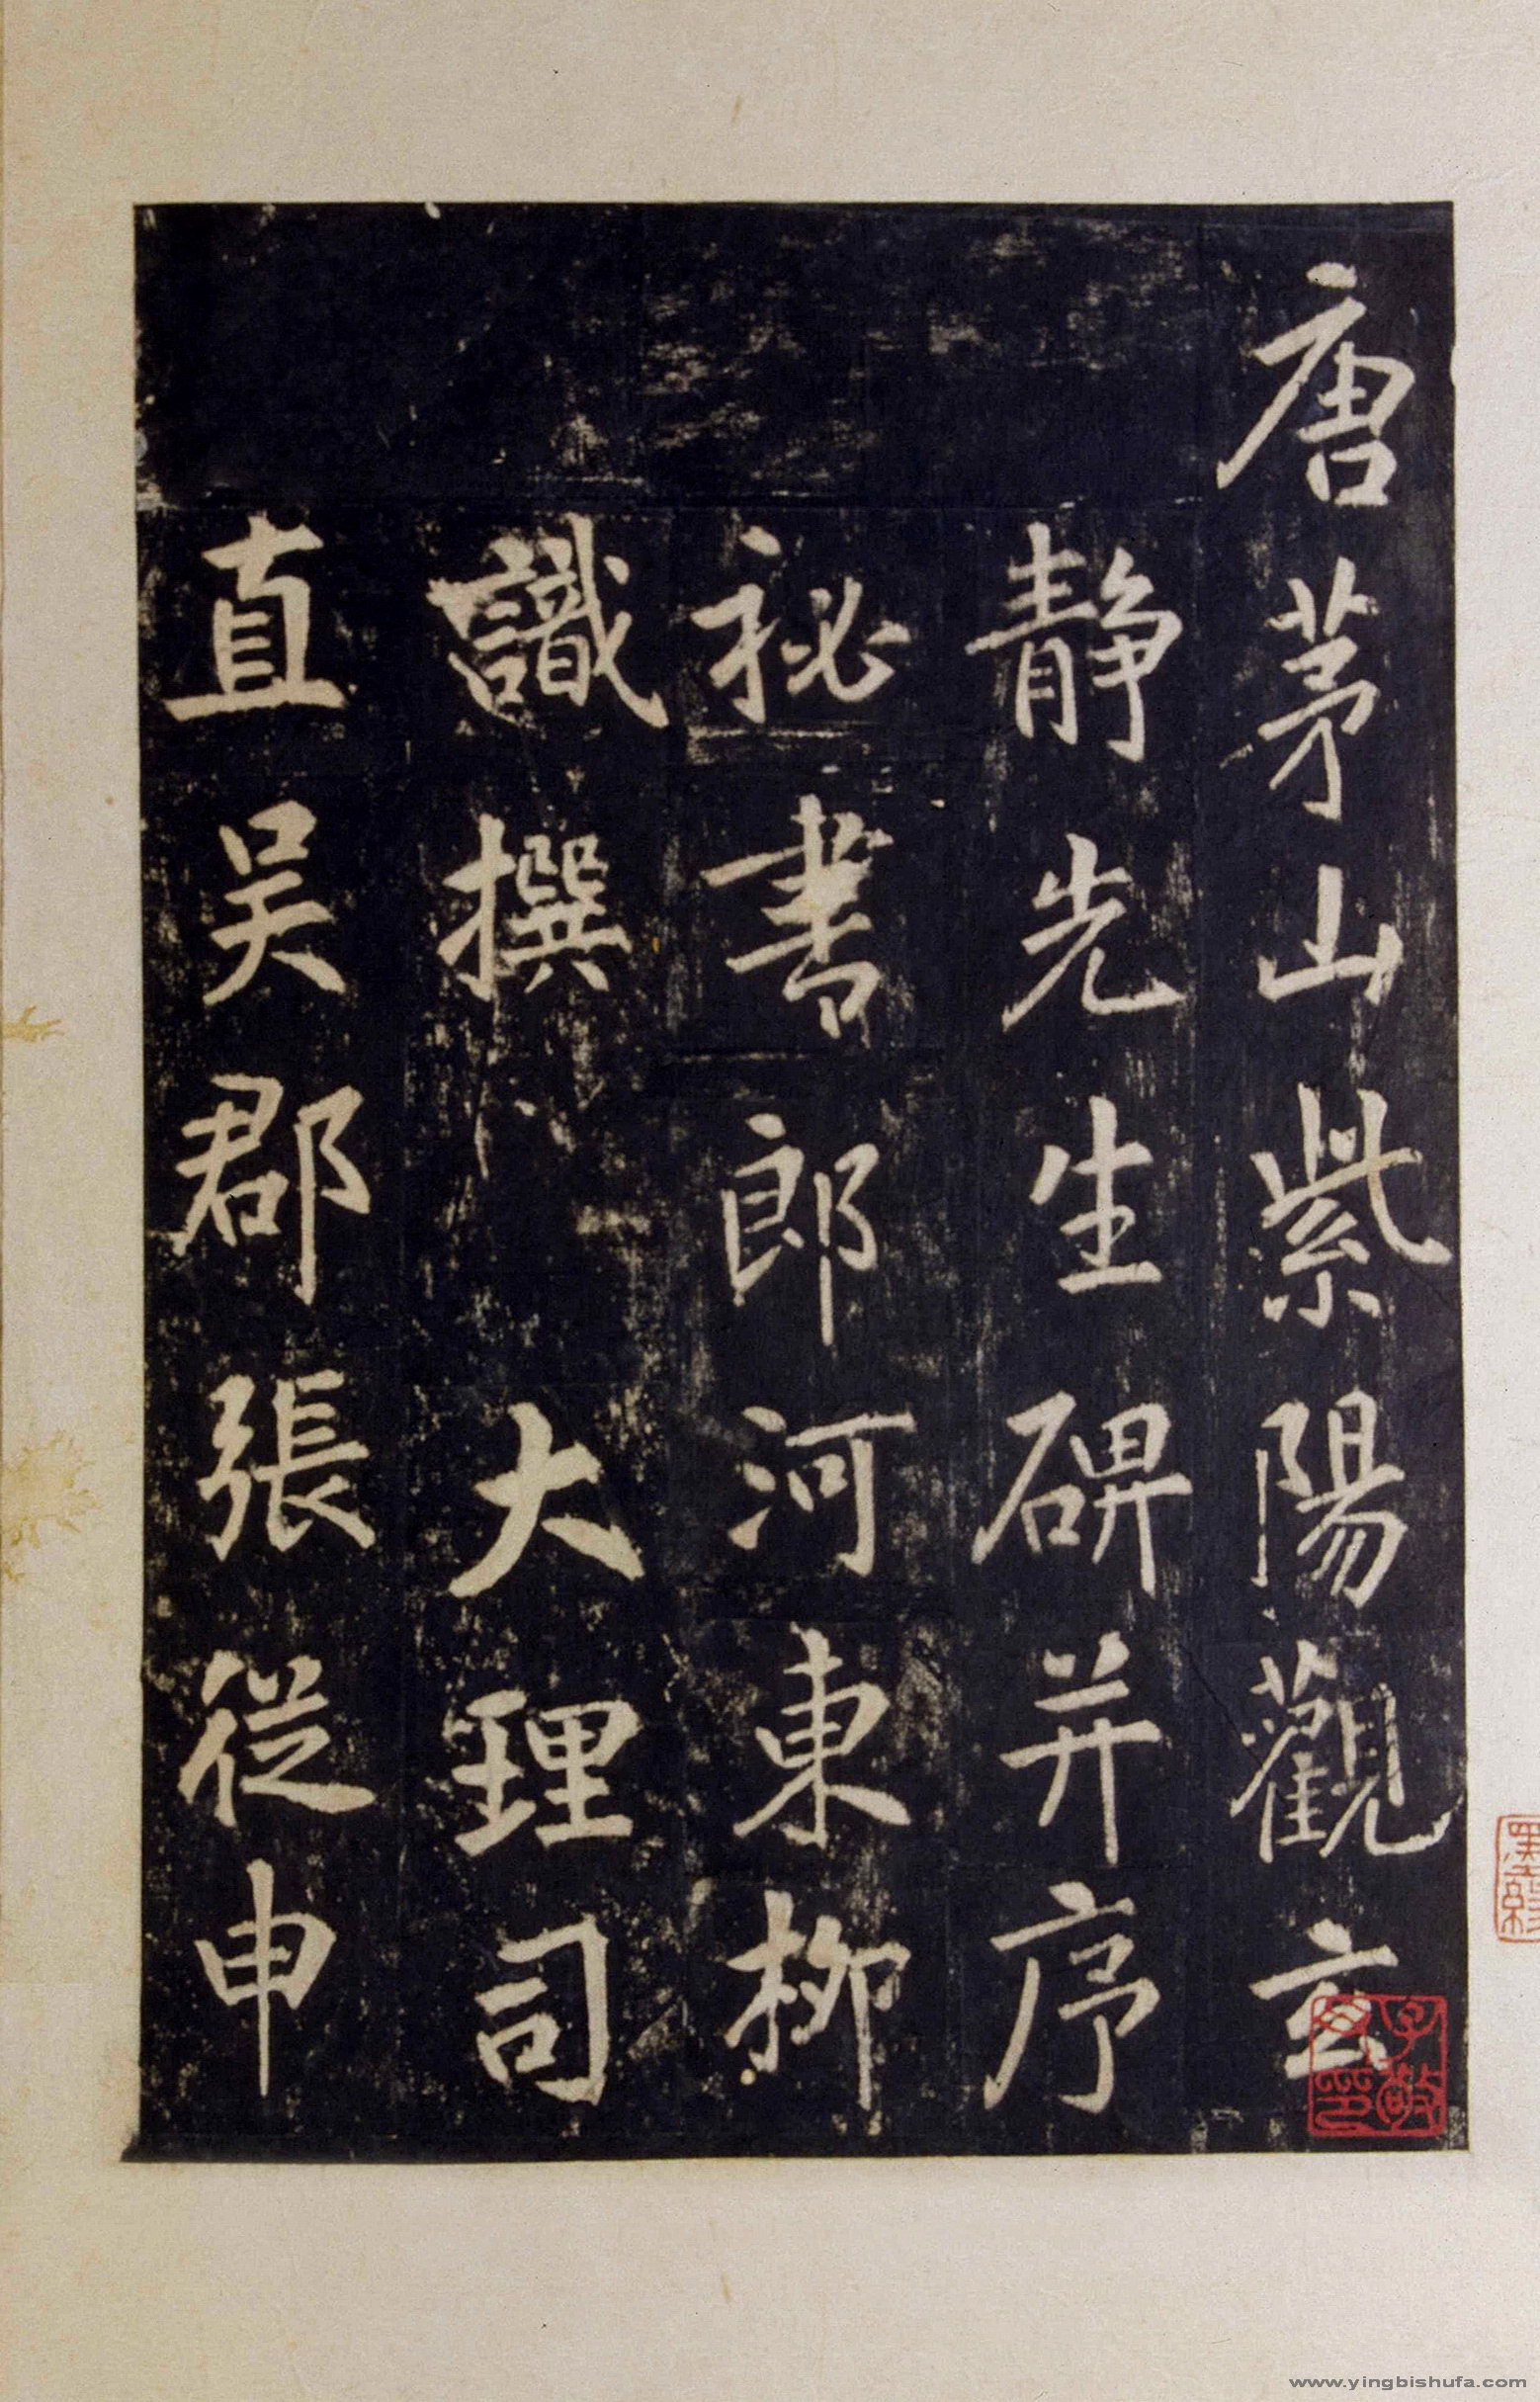 唐茅山紫陽觀玄
靜先生碑并序
祕書郎河東柳
識撰 大理司
直吳郡張從申
www.yingbishufa.com